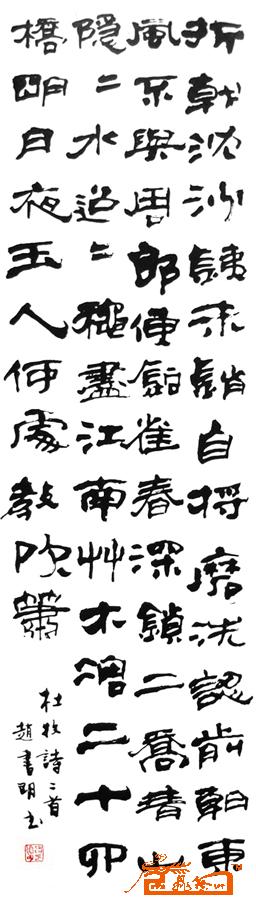 折戟沈沙鐵未銷自將磨洗認前朝東
風不與周郎便銅雀春深鎖二喬青山
隱〻水迢〻穐盡江南艸木凋二十四
橋明月夜玉人何處教吹簫
杜牧詩二首
趙書明書